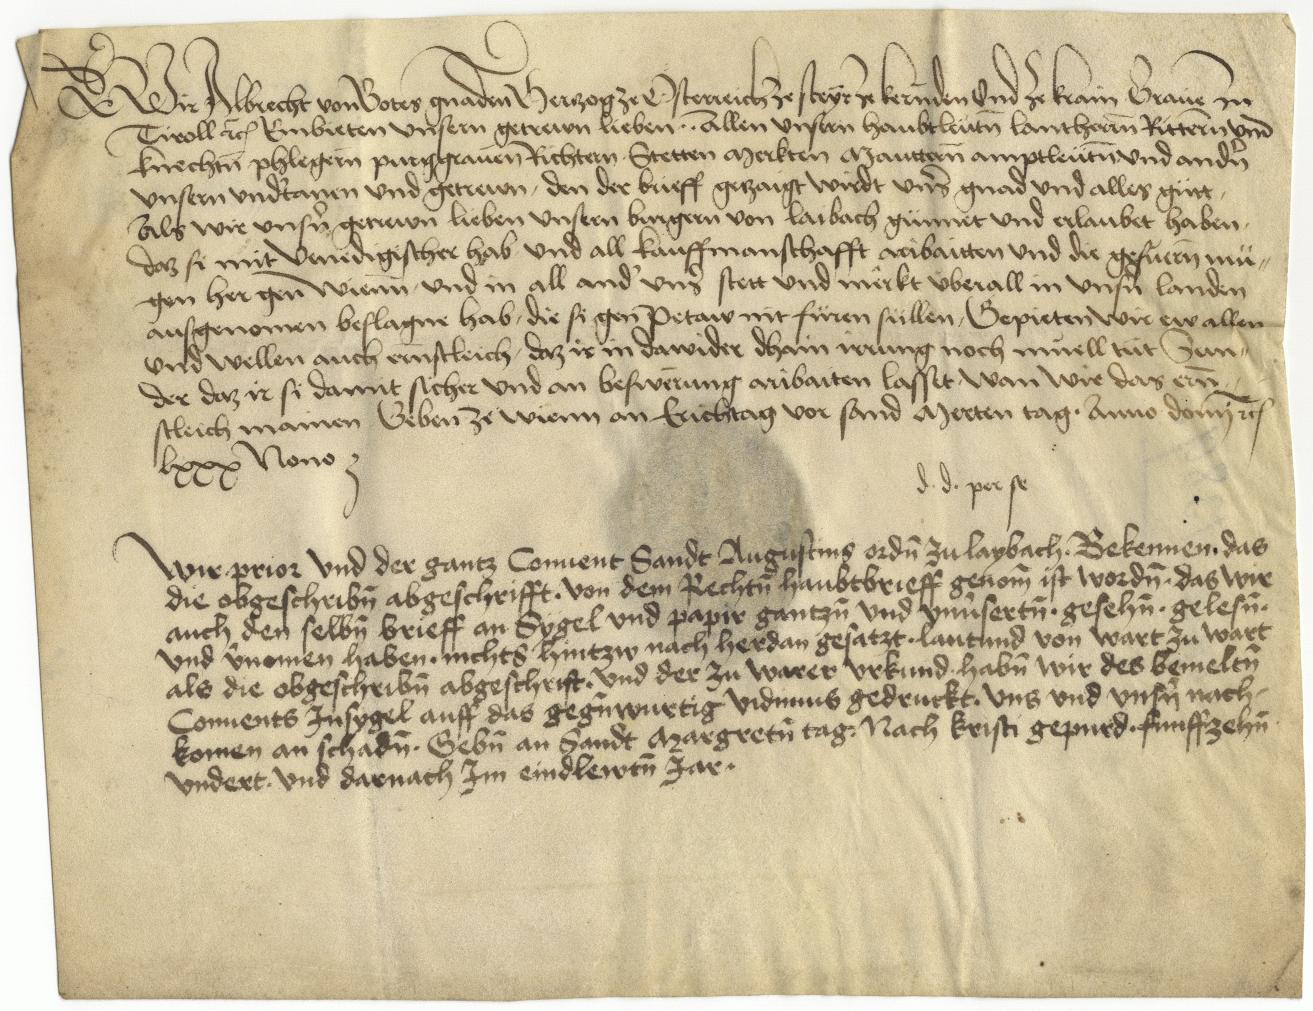 Wir Albrecht von Gotes gnaden Hertzog ze Osterreich ze Steyr ze kernden Und ze krain Graue In
Tiroll etc̃ Embieten unsern getrewn lieben .. Allen unsern haubtleutn̄ lantherrn̄ Rittern und
knechtn̄ phlegern purggrauen Richtern Stetten Merkten Mauttern̄ amptleutn̄ und andn̄
unsern undtanen und getrewn, den der brieff getzaigt wirdt uns̄ gnad und alles gutt,
Als wir unsn̄ getrewn lieben unsern burgern von laibach gunnet und erlaubet haben,
daz si mit Venedigischer hab und all kauffmanschafft aribaitten und die gefuern̄ mu=
gen her gen̄ Wienn, und in all and uns̄ stett und merkt uberall in unsn̄ landen
ausgenomen beslagne hab, die si gen̄ Petaw nit furen sullen, Gepieten wir ew allen
und wellen auch ernstleich, daz ir in dawider dhain irrung noch muell tut Sun=
der daz ir si damit sicher und an beswerung aribaiten lasset, wan wir das ern̄=
stleich mainen Geben ze Wienn an Erichtag vor sand Merten tag. Anno domī etc̃
lxxx Nono
d. d. per se
Wir prior Und der gantz Conuent Sandt Augustins ordn̄ zu laybach. Bekennen. das
die obgeschribn̄ abgeschrifft. von dem Rechtn̄ haubtbrieff genom̄ ist wordn̄. das wir
auch den selbn̄ brieff an Sygel und papir gantzn̄ und ynuersertn̄. gesehn̄. gelesn̄.
und v̄nomen haben. nichts hintzw nach herdan gesatzt. lautund von wart zu wart
als die obgeschribn̄ abgeschrift. Und der zu warer vrkund. habn̄ wir des bemeltn̄
Conuents Insygel auff das gegn̄wurtig Vidimus gedruckt. Uns und unsn̄ nach=
komen an schadn̄. Gebn̄ an Sandt Margretn̄ tag. Nach kristi gepurd. funffzehn̄
undert. und darnach Im eindleftn̄ Jar.